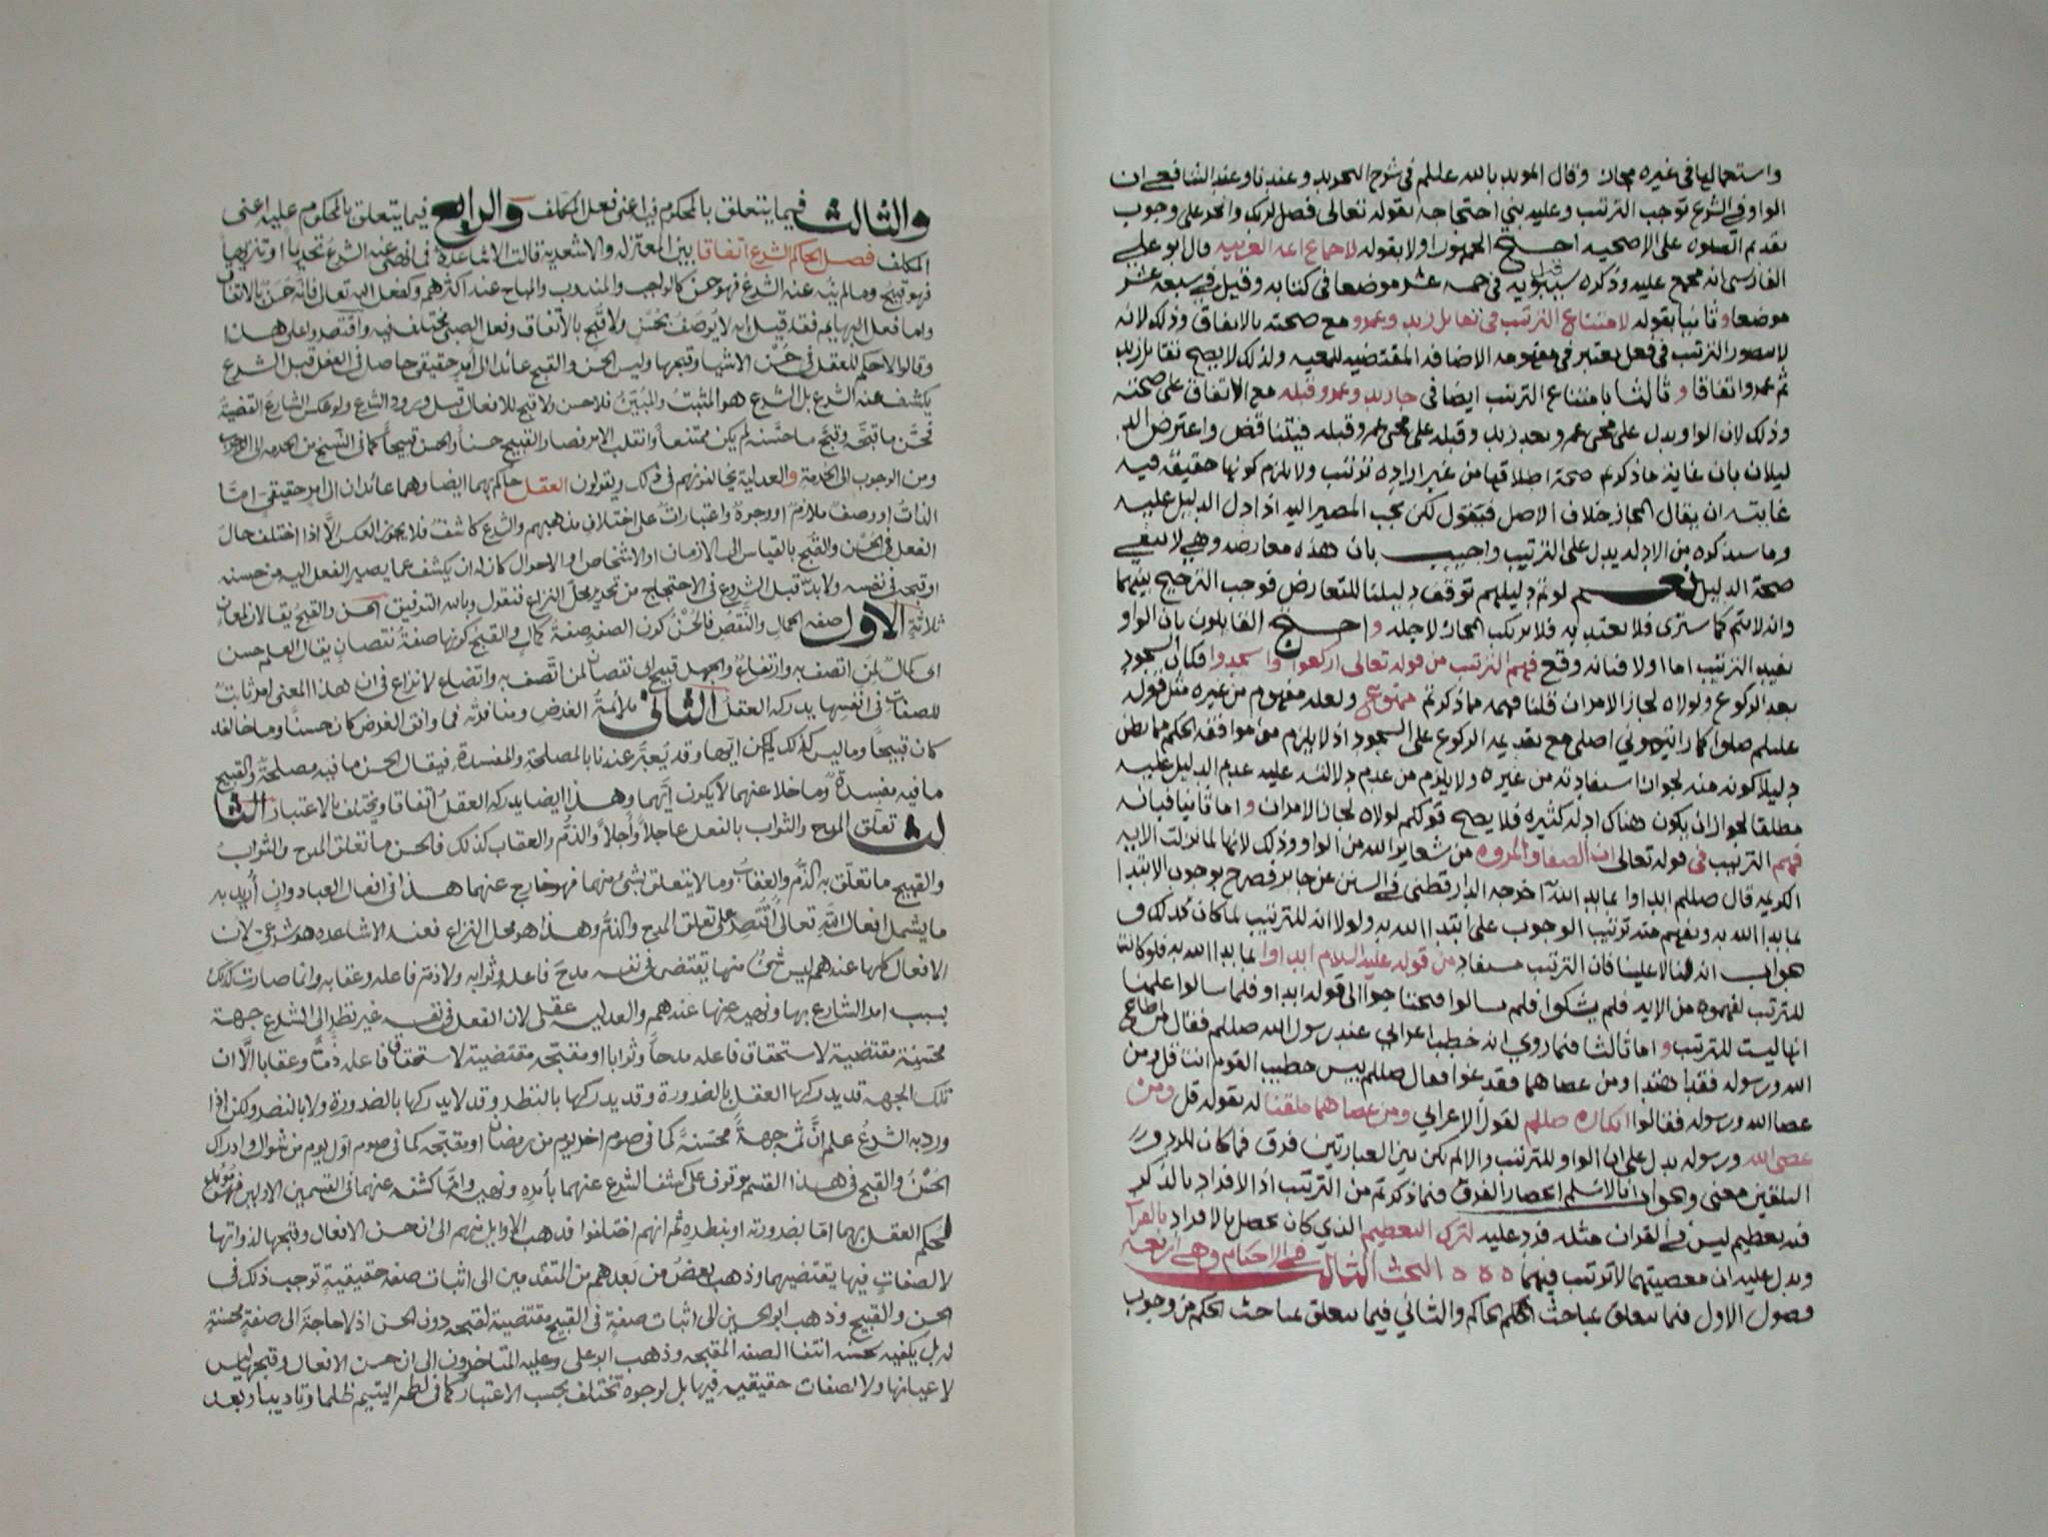 واستعمالها في غيره مجاز وقال المويد بالله عليلم في شرح التجريد وعندنا وعند الشافعي ان
الواو في الشرع توجب الترتيب وعليه بني احتجاجه بقوله تعالى فصل لربك وانحر على وجوب
تقديم الصلوه على الاضحيه احتج الجمهور اولا بقوله لاجماع ائمة العربيه قال ابو علي
الفارسي انه مجمع عليه وذكره سيبويه في خمسه عشر موضعا في كتابه وقيل في سبعه عشر
موضعا وثانيا بقوله لامتناع الترتيب في تقاتل زيد وعمرو مع صحته بالاتفاق وذلك لانه
لا يتصور الترتيب في فعل يعتبر في مفهومه الاضافه المقتضيه للمعيه ولذلك لا يصح تقاتل زيد
ثم عمرو اتفاقا وثالثا بامتناع الترتيب ايضا في جا زيد وعمرو قبله مع الاتفاق على صحته
وذلك لان الواو يدل على مجي عمرو بعد زيد وقبله على مجي عمرو قبله فيتناقض واعترض الد
ليلان بان غاية ما ذكرتم صحة اطلاقها من غير اراده ترتيب ولا يلزم كونها حقيقة فيه
غايته ان يقال المجاز خلاف الاصل فنقول لكن يجب المصير اليه اذا دل الدليل عليه
وما سنذكره من الادله يدل على الترتيب واجيب بان هذه معارضه وهي لا تنفي
صحة الدليل نعم لو تم دليلهم توقف دليلنا للتعارض فوجب الترجيح بينهما
وانه لا يتم كما سترى فلا يعتد به فلا يرتكب المجاز لاجله واحتج القايلون بان الواو
يفيد الترتيب اما اولا فبانه وقع فهم الترتيب من قوله تعالى اركعوا واسجدوا فكان السجود
بعد الركوع ولولاه لجاز الامران قلنا فهمه مما ذكرتم ممنوع ولعله مفهوم من غيره مثل قوله
عليلم صلوا كما رايتموني اصلي مع تقديمه الركوع على السجود اذ لا يلزم من موافقه الحكم مما يظن
دليلا كونه منه لجواز استفادته من غيره ولا يلزم من عدم دلالته عليه عدم الدليل عليه
مطلقا لجواز ان يكون هناك ادله كثيره فلا يصح قولكم لولاه لجاز الامران واما ثانيا فبانه
فهم الترتيب في قوله تعالى ان الصفا والمروه من شعاير الله من الواو وذلك لانها لما نزلت الايه
الكريمه قال صللم ابداوا بما بدا الله اخرجه الدارقطني في السنن عن جابر فصرح بوجوب الابتدا
بما بدا الله به ويفهم منه ترتيب الوجوب على ابتدا الله به ولولا انه للترتيب لما كان كذلك و
جواب انه لنا لا علينا فان الترتيب مستفاد من قوله عليه السلام ابداوا بما بدا الله به فلو كانت
للترتيب لفهموه من الايه فلم يشكوا فلم يسالوا فيحتاجوا الى قوله ابداوا فلما سالوا علمنا
انها ليست للترتيب واما ثالثا فبما روي انه خطب اعرابي عند رسول الله صللم فقال من اطاع
الله ورسوله فقد اهتدا ومن عصاهما فقد غوا فقال صللم بيس خطيب القوم انت قل ومن
عصا الله ورسوله فقالوا انكاره صللم لقول الاعرابي ومن عصاهما ملقنا له بقوله قل ومن
عصى الله ورسوله يدل على ان الواو للترتيب والا لم يكن بين العبارتين فرق فما كان للرد ور
التلقين معنى والجواب انا لا نسلم انحصار الفرق فيما ذكرتم من الترتيب اذ الافراد بالذكر
فيه تعظيم ليس في القران مثله فرد عليه لترك التعظيم الذي كان يحصل بالافراد بالقران
ويدل عليه ان معصيتهما لا ترتيب فيهما ٥ ٥ ٥ البحث الثالث في الاحكام وهي اربعه
فصول الاول فيما يتعلق بمباحث الحكم الحاكم والثاني فيما يتعلق بمباحث الحكم من وجوب
والثالث فيما يتعلق بالمحكوم فيه اعني فعل المكلف والرابع فيما يتعلق بالمحكوم عليه اعني
المكلف فصل الحاكم الشرع اتفاقا بين المعتزله والاشعريه قالت الاشاعرة فما نهى عنه الشرع تحريما او تنزيها
فهو قبيح وما لم ينه عنه الشرع فهو حسن كالواجب والمندوب والمباح عند اكثرهم وكفعل الله تعالى فانه حسن بالاتفاق
واما فعل البهايم فقد قيل انه لا يوصف بحسن ولا قبح بالاتفاق وفعل الصبي مختلف فيه واقتصروا على هذا
وقالوا لا حكم للعقل في حسن الاشياء وقبحها وليس الحسن والقبح عائدا الى امر حقيقي حاصل في الفعل قبل الشرع
يكشف عنه الشرع بل الشرع هو المثبت والمبين فلا حسن ولا قبح للافعال قبل ورود الشرع ولو عكس الشارع القضية
فحسن ما قبحه وقبح ما حسنه لم يكن ممتنعا وانقلب الامر فصار القبيح حسنا والحسن قبيحا كما في النسخ من الحرمه الى الوجوب
ومن الوجوب الى الحرمة والعدلية يخالفونهم في ذلك ويقولون العقل حاكم بهما ايضا وهما عائدان الى امر حقيقي اما
الذات او وصف ملازم او وجوه واعتبارات على اختلاف مذهبهم والشرع كاشف فلا يجوز العكس الا اذا اختلف حال
الفعل في الحسن والقبح بالقياس الى الازمان او الاشخاص او الاحوال كان له ان يكشف عما يصير الفعل اليه من حسنه
او قبحه في نفسه ولا بد قبل الشروع في الاحتجاج من تحرير محل النزاع فنقول وبالله التوفيق الحسن والقبح يقالان لمعان
ثلاثة الاول صفه الكمال والنقص فالحسن كون الصفه صفة كمال والقبح كونها صفة نقصان يقال العلم حسن
اي كمال لمن اتصف به وارتفاع والجهل قبيح اي نقصان لمن اتصف به واتضاع لا نزاع في ان هذا المعنى امر ثابت
للصفات في انفسها يدركه العقل الثاني ملائمة الغرض ومنافرته فما وافق الغرض كان حسنا وما خالفه
كان قبيحا وما ليس كذلك لم يكن ايهما وقد يعبر عندنا بالمصلحة والمفسدة فيقال الحسن ما فيه مصلحة والقبيح
ما فيه مفسدة وما خلا عنهما لا يكون ايهما وهذا ايضا يدركه العقل اتفاقا ويختلف بالاعتبار الثا
لث تعلق المدح والثواب بالفعل عاجلا واجلا والذم والعقاب كذلك فالحسن ما تعلق المدح والثواب
والقبيح ما تعلق به الذم والعقاب وما لا يتعلق بشئ منهما فهو خارج عنهما هذا في افعال العباد وان اريد به
ما يشمل افعال الله تعالى اقتصر على تعلق المدح والذم وهذا هو محل النزاع فعند الاشاعره هو شرعي لان
الافعال كلها عندهم ليس شئ منها يقتضى في نفسه مدح فاعله وثوابه ولا ذم فاعله وعقابه وانما صارت كذلك
بسبب امر الشارع بها ونهيه عنها عندهم والعدليه عقلي لان الفعل في نفسه غير نظر الى الشرع جهة
محسنة مقتضية لاستحقاق فاعله مدحا وثوابا او مقبحه مقتضية لاستحقاق فاعله ذما وعقابا الا ان
تلك الجهه قد يدركها العقل بالضرورة وقد يدركها بالنظر وقد لا يدركها بالضرورة ولا بالنظر ولكن اذا
ورد به الشرع علم ان ثمه جهة محسنة كما في صوم اخر يوم من رمضان او مقبحه كما في صوم اول يوم من شوال وادراك
الحسن والقبح في هذا القسم موقوف على كشف الشرع عنهما بأمره ونهيه واما كشفه عنهما في القسمين الاولين فهو مؤيد
لحكم العقل بهما اما بضرورته او بنظره ثم انهم اختلفوا فذهب الاوايل منهم الى ان حسن الافعال وقبحها لذواتها
لا لصفات فيها يقتضيهما وذهب بعض من بعدهم من المتقدمين الى اثبات صفه حقيقية توجب ذلك في
الحسن والقبيح وذهب ابو الحسين الى اثبات صفة في القبيح مقتضية لقبحه دون الحسن اذ لا حاجة الى صفة محسنة
له بل يكفيه لحسنه انتفا الصفه المقبحه وذهب ابو علي وعليه المتاخرون الى ان حسن الافعال وقبحها ليس
لاعيانها ولا لصفات حقيقيه فيها بل لوجوه تختلف بحسب الاعتبار كما في لطم اليتيم ظلما وتاديبا وبعد